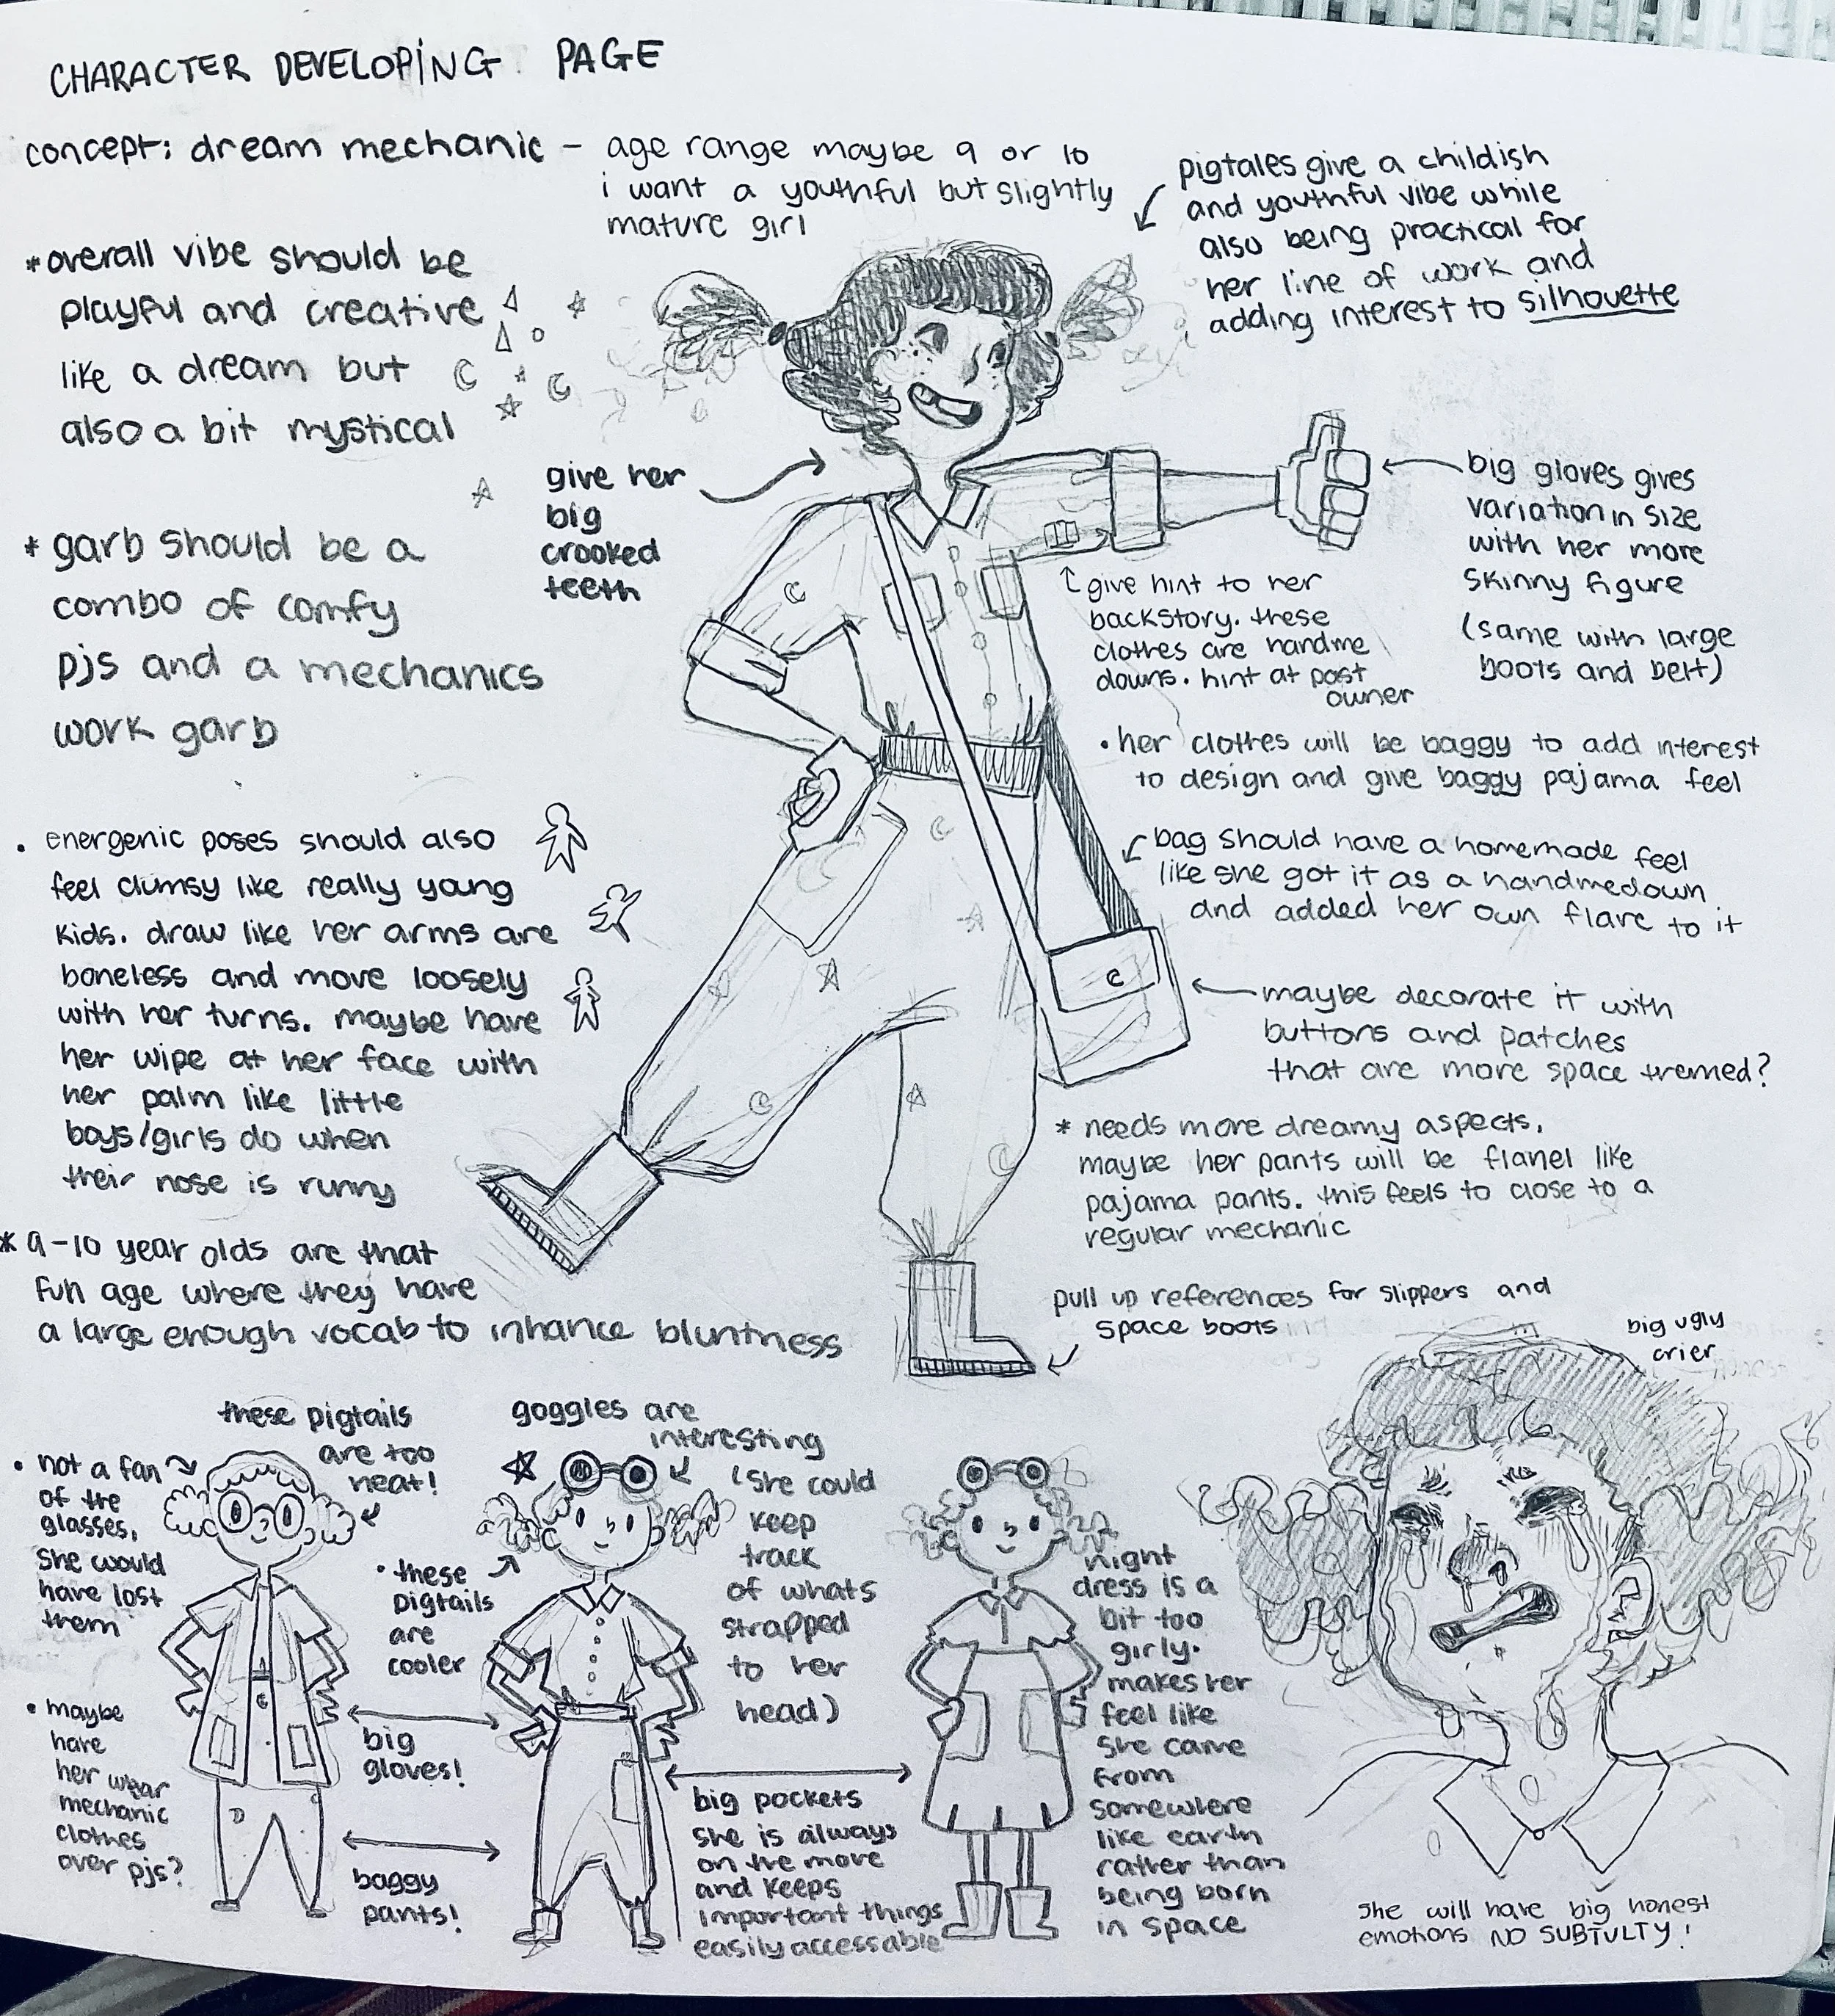 CHARACTER DEVELOPING PAGE
concept: dream mechanic – age range maybe 9 or 10
i want a youthful but slightly
mature girl
pigtales give a childish
and youthful vibe while
also being practical for
her line of work and
adding interest to silhouette
*overall vibe should be
playful and creative
like a dream but
also a bit mystical
give her
big
crooked
teeth
big gloves gives
variation in size
with her more
skinny figure
(same with large
boots and belt)
* garb should be a
combo of comfy
pjs and a mechanics
work garb
give hint to her
backstory. these
clothes are handme
downs. hint at past
owner
• her clothes will be baggy to add interest
to design and give baggy pajama feel
• energenic poses should also
feel clumsy like really young
kids. draw like her arms are
boneless and move loosely
with her turns. maybe have
her wipe at her face with
her palm like little
boys/girls do when
their nose is runny
bag should have a homemade feel
like she got it as a handmedown
and added her own flare to it
maybe decorate it with
buttons and patches
that are more space themed?
* needs more dreamy aspects,
maybe her pants will be flanel like
pajama pants. this feels to close to a
regular mechanic
* 9-10 year olds are that
fun age where they have
a large enough vocab to inhance bluntness
pull up references for slippers and
space boots
big ugly
crier
these pigtails
are too
neat!
• not a fan
of the
glasses,
she would
have lost
them
goggles are
interesting
(she could
keep
track
of whats
strapped
to her
head)
• these
pigtails
are
cooler
night
dress is a
bit too
girly.
makes her
feel like
she came
from
somewhere
like earth
rather than
being born
in space
• maybe
have
her wear
mechanic
clothes
over pjs?
big
gloves!
baggy
pants!
big pockets
she is always
on the move
and keeps
important things
easily accessable
she will have big honest
emotions NO SUBTULTY!